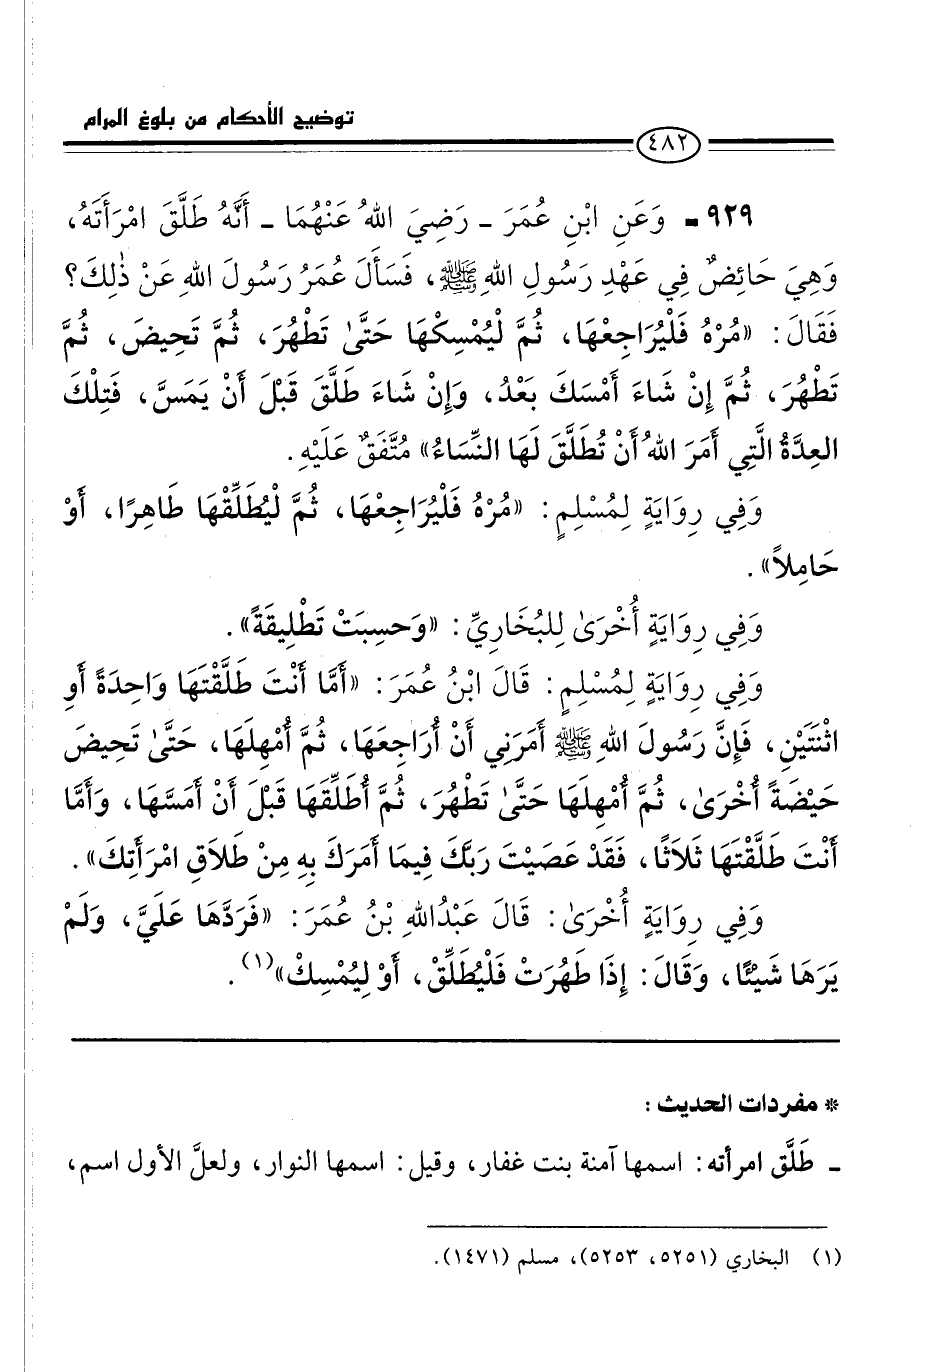 توضيح الأحكام من بلوغ المرام
٤٨٢
٩٢٩ ـ وَعَنِ ابْنِ عُمَرَ ـ رَضِيَ اللهُ عَنْهُمَا ـ أَنَّهُ طَلَّقَ امْرَأَتَهُ،
وَهِيَ حَائِضٌ فِي عَهْدِ رَسُولِ اللهِ ﷺ، فَسَأَلَ عُمَرُ رَسُولَ اللهِ عَنْ ذٰلِكَ؟
فَقَالَ: «مُرْهُ فَلْيُرَاجِعْهَا، ثُمَّ لْيُمْسِكْهَا حَتَّىٰ تَطْهُرَ، ثُمَّ تَحِيضَ، ثُمَّ
تَطْهُرَ، ثُمَّ إِنْ شَاءَ أَمْسَكَ بَعْدُ، وَإِنْ شَاءَ طَلَّقَ قَبْلَ أَنْ يَمَسَّ، فَتِلْكَ
العِدَّةُ الَّتِي أَمَرَ اللهُ أَنْ تُطَلَّقَ لَهَا النِّسَاءُ» مُتَّفَقٌ عَلَيْهِ.
وَفِي رِوَايَةٍ لِمُسْلِمٍ: «مُرْهُ فَلْيُرَاجِعْهَا، ثُمَّ لْيُطَلِّقْهَا طَاهِرًا، أَوْ
حَامِلاً».
وَفِي رِوَايَةٍ أُخْرَىٰ لِلبُخَارِيِّ: «وَحَسِبَتْ تَطْلِيقَةً».
وَفِي رِوَايَةٍ لِمُسْلِمٍ: قَالَ ابْنُ عُمَرَ: «أَمَّا أَنْتَ طَلَّقْتَهَا وَاحِدَةً أَوِ
اثْنَتَيْنِ، فَإِنَّ رَسُولَ اللهِ ﷺ أَمَرَنِي أَنْ أُرَاجِعَهَا، ثُمَّ أُمْهِلَهَا، حَتَّىٰ تَحِيضَ
حَيْضَةً أُخْرَىٰ، ثُمَّ أُمْهِلَهَا حَتَّىٰ تَطْهُرَ، ثُمَّ أُطَلِّقَهَا قَبْلَ أَنْ أَمَسَّهَا، وَأَمَّا
أَنْتَ طَلَّقْتَهَا ثَلَاثًا، فَقَدْ عَصَيْتَ رَبَّكَ فِيمَا أَمَرَكَ بِهِ مِنْ طَلَاقِ امْرَأَتِكَ».
وَفِي رِوَايَةٍ أُخْرَىٰ: قَالَ عَبْدُاللهِ بْنُ عُمَرَ: «فَرَدَّهَا عَلَيَّ، وَلَمْ
يَرَهَا شَيْئًا، وَقَالَ: إِذَا طَهُرَتْ فَلْيُطَلِّقْ، أَوْ لِيُمْسِكْ»(١).
* مفردات الحديث:
ـ طَلَّق امرأته: اسمها آمنة بنت غفار، وقيل: اسمها النوار، ولعلَّ الأول اسم،
(١) البخاري (٥٢٥١، ٥٢٥٣)، مسلم (١٤٧١).